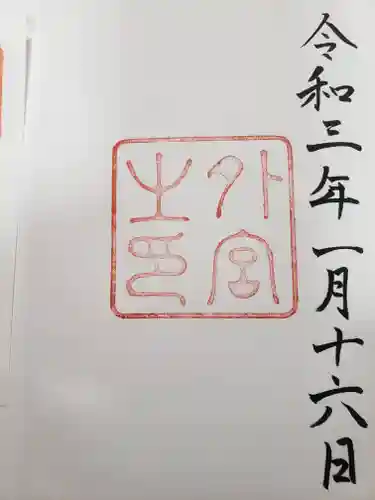 令和三年一月十六日
外宮
之印